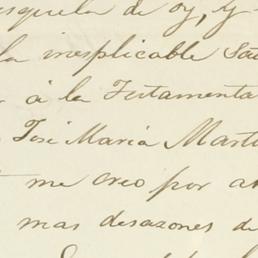 esquela de oy, y
la inesplicable Sa
à la Testamenta
José Maria Marti
me creo por a
mas desazones de